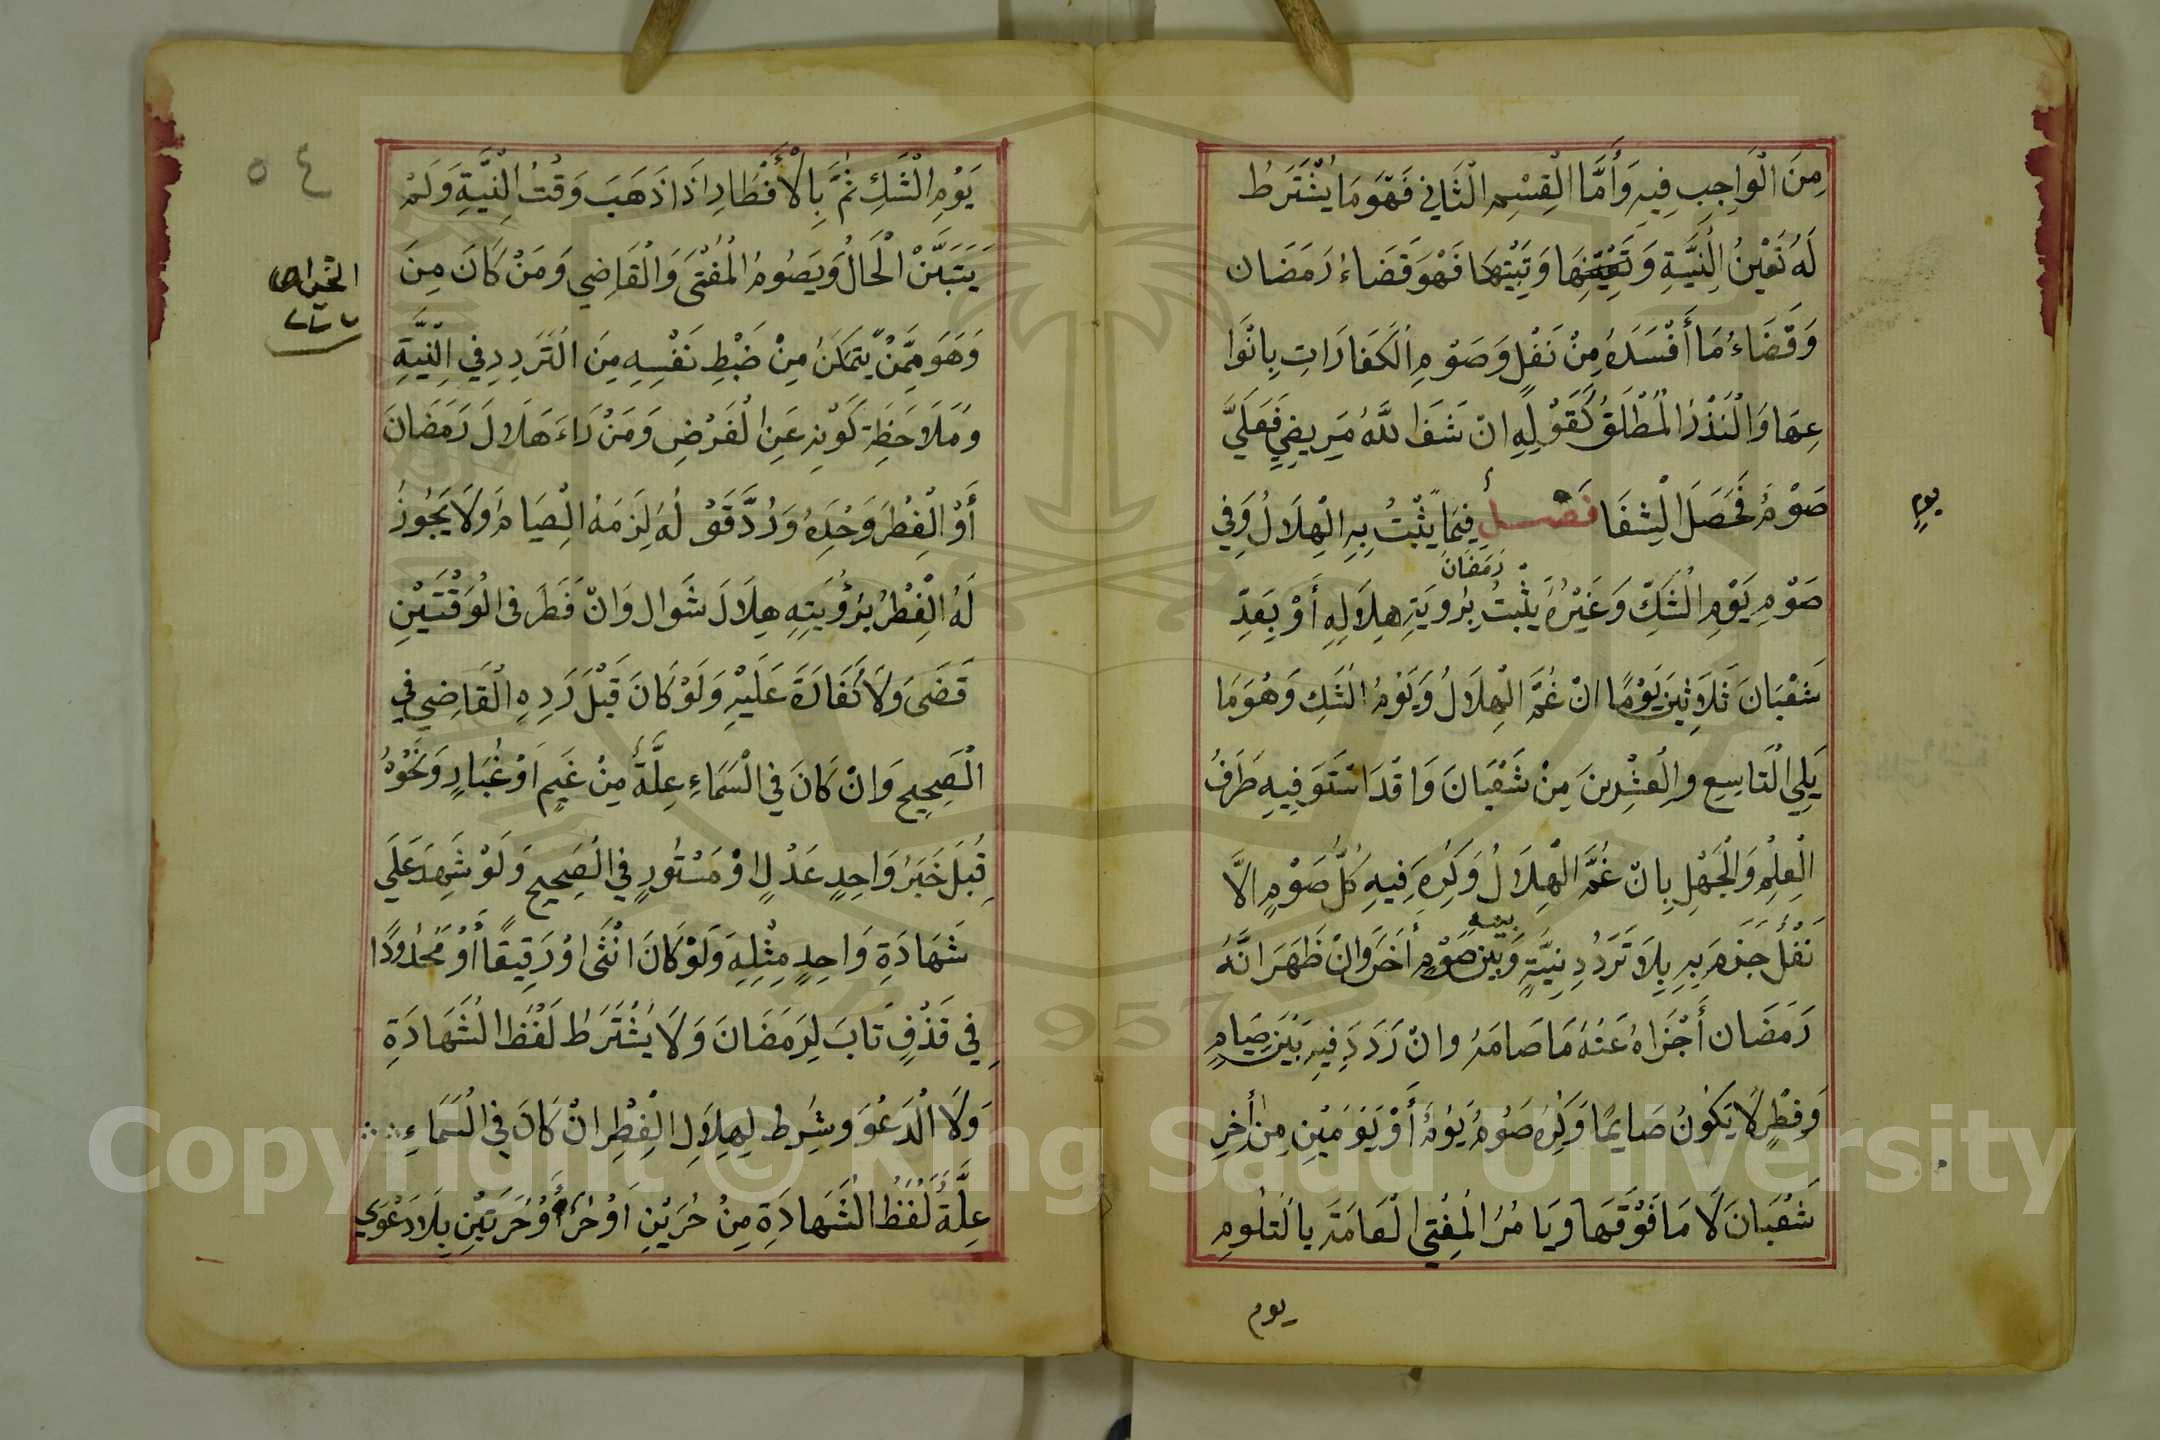 مِنَ الْوَاجِبِ فِيهِ وَأَمَّا الْقِسْمِ الْثَانِي فَهُوَ مَا يُشْتَرَطُ
لَهُ تَعْيِنُ الْنِيَّةِ وَتَبْيِتِهَا فَهُوَ قَضَاءُ رَمَضَان
وَقَضَاءُ مَا أَفْسَدَهُ مِنْ نَفْلٍ وَصَوْمِ الْكَفَارَاتِ بِانْوَا
عِهَا وَالْنَذْرُ الْمُطْلَقُ كَقَوْلِهِ انْ شَفَا للَّهُ مَرِيضِي فَعَلَيَّ
صَوْمُ فَحَصَلَ الْشِفَا فَصْلٌ فِيمَا يَثْبُتُ بِهِ الْهِلَالُ وَفِي
يومٍ
رَمَضَانَ
صَوْمِ يَوْمِ الْشَكِّ وَغَيْرُهُ يَثْبُتُ بِرُويَةِ هِلَالِهِ أَوْ بِعَدِّ
شَعْبَانَ ثَلَاثِينَ يَوْمًا انْ غُمَّ الْهِلَالُ وَيَوْمُ الْشَكِ وَهُوَ مَا
يَلِي الْتَاسِعِ والْعِشْرِينَ مِنْ شَعْبَانَ وَاقْدَ اسْتَوَ فِيهِ طَرَفُ
الْعِلْمِ وَالْجَهْلِ بِانْ غُمَّ الْهِلَالُ وَكَرِهَ فِيهِ كُلُّ صَوْمٍ الَّا
نَفْلُ جَزَمَ بِهِ بِلَا تَرَدُدِ نِيَّةٍ وَبَيْنَ صَوْمٍ أَخَرَ وَانْ ظَهَرَ انَّهُ
بينه
رَمَضَان أَجْزَاهُ عَنْهُ مَا صَامَهُ وانْ رَدَدَ فِيهِ بَيْنَ صِيَامٍ
وَفِطْرٍ لَا يَكُونُ صَايِمًا وَكَرِهَ صَوْمُ يَوْمٍ أَوْ يَوَمَيْنِ مِنْ أخِرِ
شَعْبَانَ لَا مَا فَوْقَهَا وَيَامُرُ الْمُفْتِي الْعَامَةَ بالْتَلُومِ
يوم
٥٤
يَوْمِ الْشَكِ ثُمَّ بِالْأَفْطَارِ اذَا ذَهَبَ وَقْتُ الْنِيَّةِ وَلَمْ
يَتَبَيَّنْ الْحَالُ وَيَصُومُ الْمُفْتِى وَالْقَاضِي وَمَنْ كَانَ مِنَ
الخواص
وَهَوَ مِمَّنْ يَتَمَكَنُ مِنْ ضَبْطِ نَفْسِهِ مِنَ الْتَرَدِدِ فِي الْنِيَّةِ
وَمَلَاحَظِة كَوْنِهِ عَنِ الْفَرْضِ وَمَنْ رَاءَ هَلَالَ رَمَضَانَ
أَوْ الْفِطْرَ وَحْدَهُ وَرُدَّ قَوْلُهُ لَزِمَهُ الْصِيَامُ وَلَا يَجُوزُ
لَهُ الْفِطْرُ بِرُؤْيَتِهِ هِلَالَ شَوَال وَانْ فَطَرَ فى الْوَقْتَيْنِ
قَضَى وَلَا كَفَارَةَ عَلَيْهِ وَلَوْ كَانَ قَبْلَ رَدِهِ الْقَاضِي فِي
الْصَحِيحِ وَانْ كَانَ فِي الْسَمَاءِ عِلَّةٌ مِنْ غَيمٍ اَوْ غُبَارٍ وَنَحْوُهُ
قُبِلَ خَبَرُ وَاحِدٍ عَدْلٍ اوْ مَسْتُورٍ فِي الْصَحِيحِ وَلَوْ شَهِدَ عَلَي
شَهَادَةِ وَاحِدٍ مِثْلِهِ وَلَوْ كَانَ انْثَى اوْ رَقِيقًا أَوْ مَحْدُودًا
فِي قَذْفٍ تَابَ لِرَمَضَانَ وَلَا يُشْتَرَطُ لَفْظُ الْشَهَادَةِ
وَلَا الْدَعْوَ وشَرِطُ لِهِلَالِ الْفِطْرِ انْ كَانَ فِي الْسَمَاءِ
عِلَّةٌ لَفْظُ الْشَهَادَةِ مِنْ حُرَيْنِ اَوْ حُرٍ أَوْ حُرَتَيْنِ بِلَا دَعْوَي
Copyright © King Saud University
1957